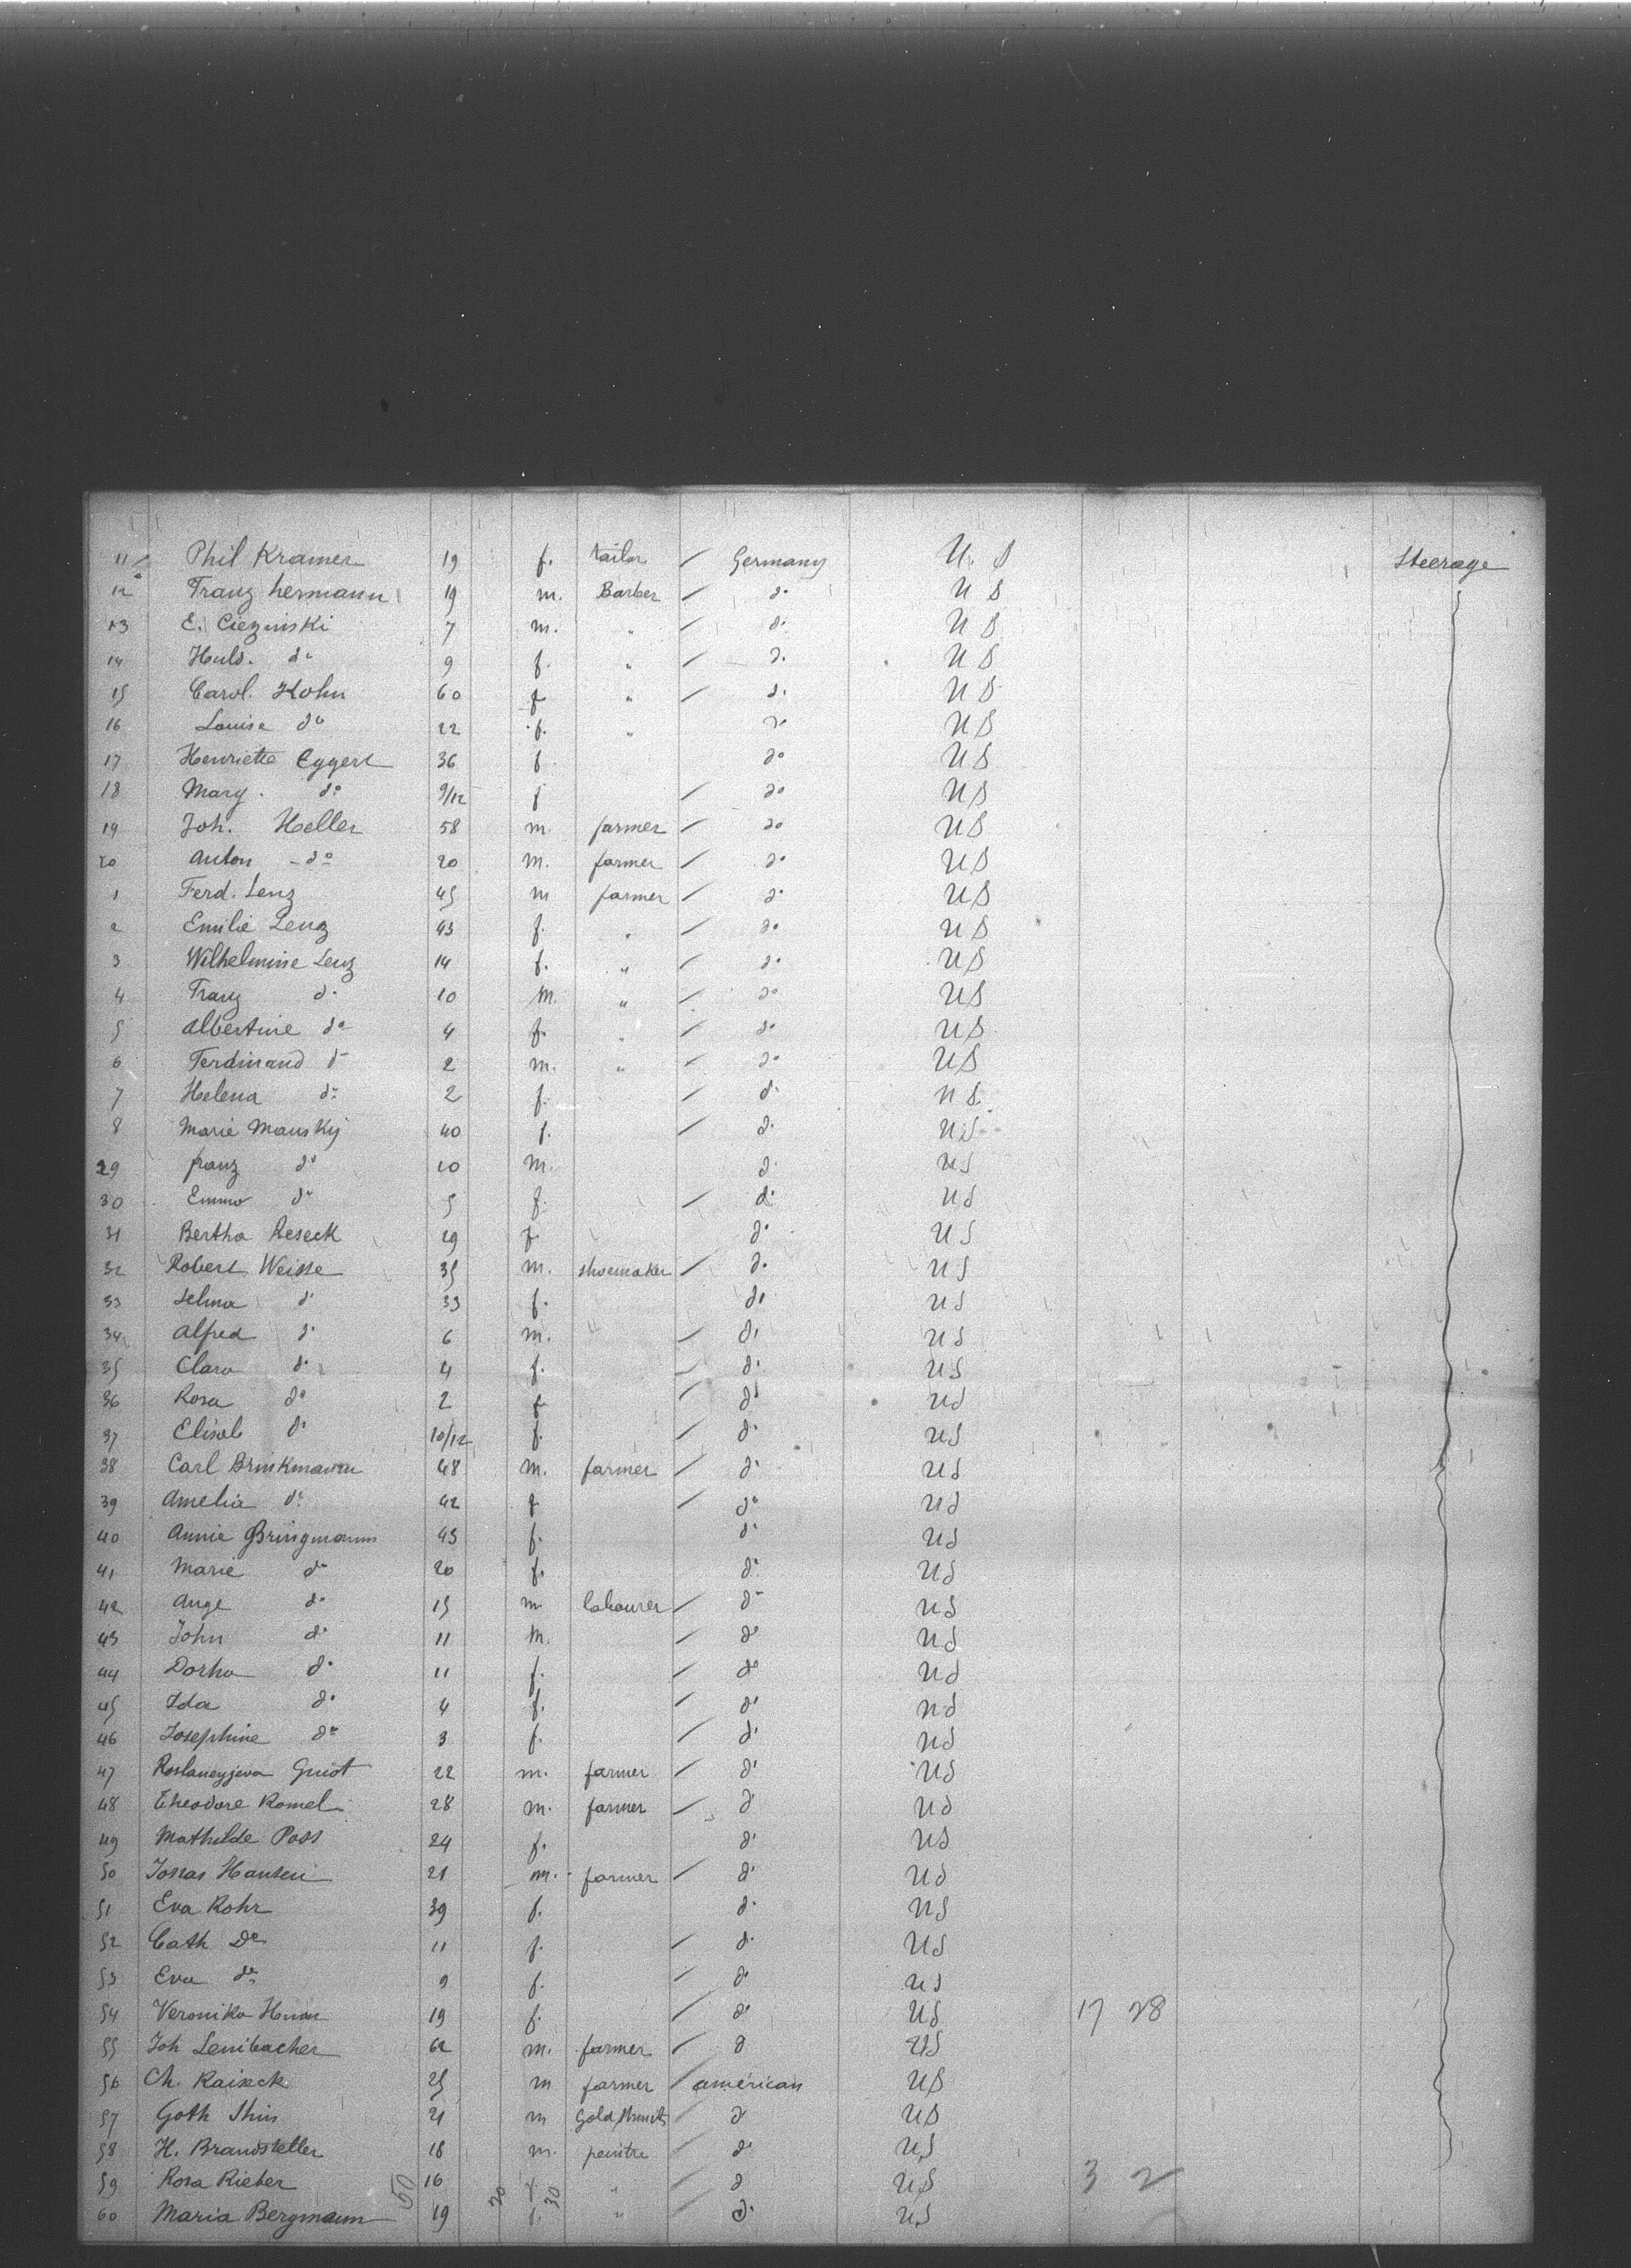 11 Phil Kramer 19 f. tailor / Germany U. S Steerage
12 Franz hermann 19 m. Barber / do U S
13 E. Ciezinski 7 m. " / do U S
14 Huld. do 9 f. " / do U S
15 Carol. Kohn 60 f " / do U S
16 Louise do 22 f. " do U S
17 Henriette Eggert 36 f. do U S
18 Mary. do 9/12 f / do U S
19 Joh. Heller 58 m. farmer / do U S
20 Anton - do 20 m. farmer / do U S
1 Ferd. Lenz 45 m farmer / do U S
2 Emilie Lenz 43 f. " / do U S
3 Wilhelmine Lenz 14 f. " / do U S
4 Franz do 10 m. " / do U S
5 Albertine do 4 f. " / do U S
6 Ferdinand do 2 m. " / do U S
7 Helena do 2 f. / do U S
8 Marie Mansky 40 f. / do U S
29 franz do 10 m. do U S
30 Emma do 5 f. / do U S
31 Bertha Reseck 19 f. do U S
32 Robert Weisse 35 m. shoemaker / do U S
33 Selma do 33 f. do U S
34 Alfred do 6 m. / do U S
35 Clara do 4 f. / do U S
36 Rosa do 2 f / do U S
37 Elisab do 10/12 f. / do U S
38 Carl Brinkmann 48 m. farmer / do U S
39 Amelia do 42 f / do U S
40 Annie Bringmann 43 f. do U S
41 Marie do 20 f. do U S
42 Auge do 15 m labourer / do U S
43 John do 11 m. / do U S
44 Dorha do 11 f. / do U S
45 Ida do 4 f. / do U S
46 Josephine do 3 f. / do U S
47 Guiot 22 m. farmer / do U S
48 Theodore Romel 28 m. farmer / do U S
49 Mathilde Poss 24 f. do U S
50 Jonas Hansen 21 m. farmer / do U S
51 Eva Rohr 39 f. do U S
52 Cath Do 11 f. / do U S
53 Eva do 9 f. / do U S
54 Veronika 19 f. / do U S 17 28
55 Joh 62 m. farmer / do U S
56 Ch. Raiseck 25 m farmer / américan U S
57 Goth 21 m / do U S
58 H. Brandstetter 18 m. peintre / do U S
59 Rosa Rieber 16 f " / do U S 3 2
60 Maria Bergmann 19 f. " / do U S
50 20 30